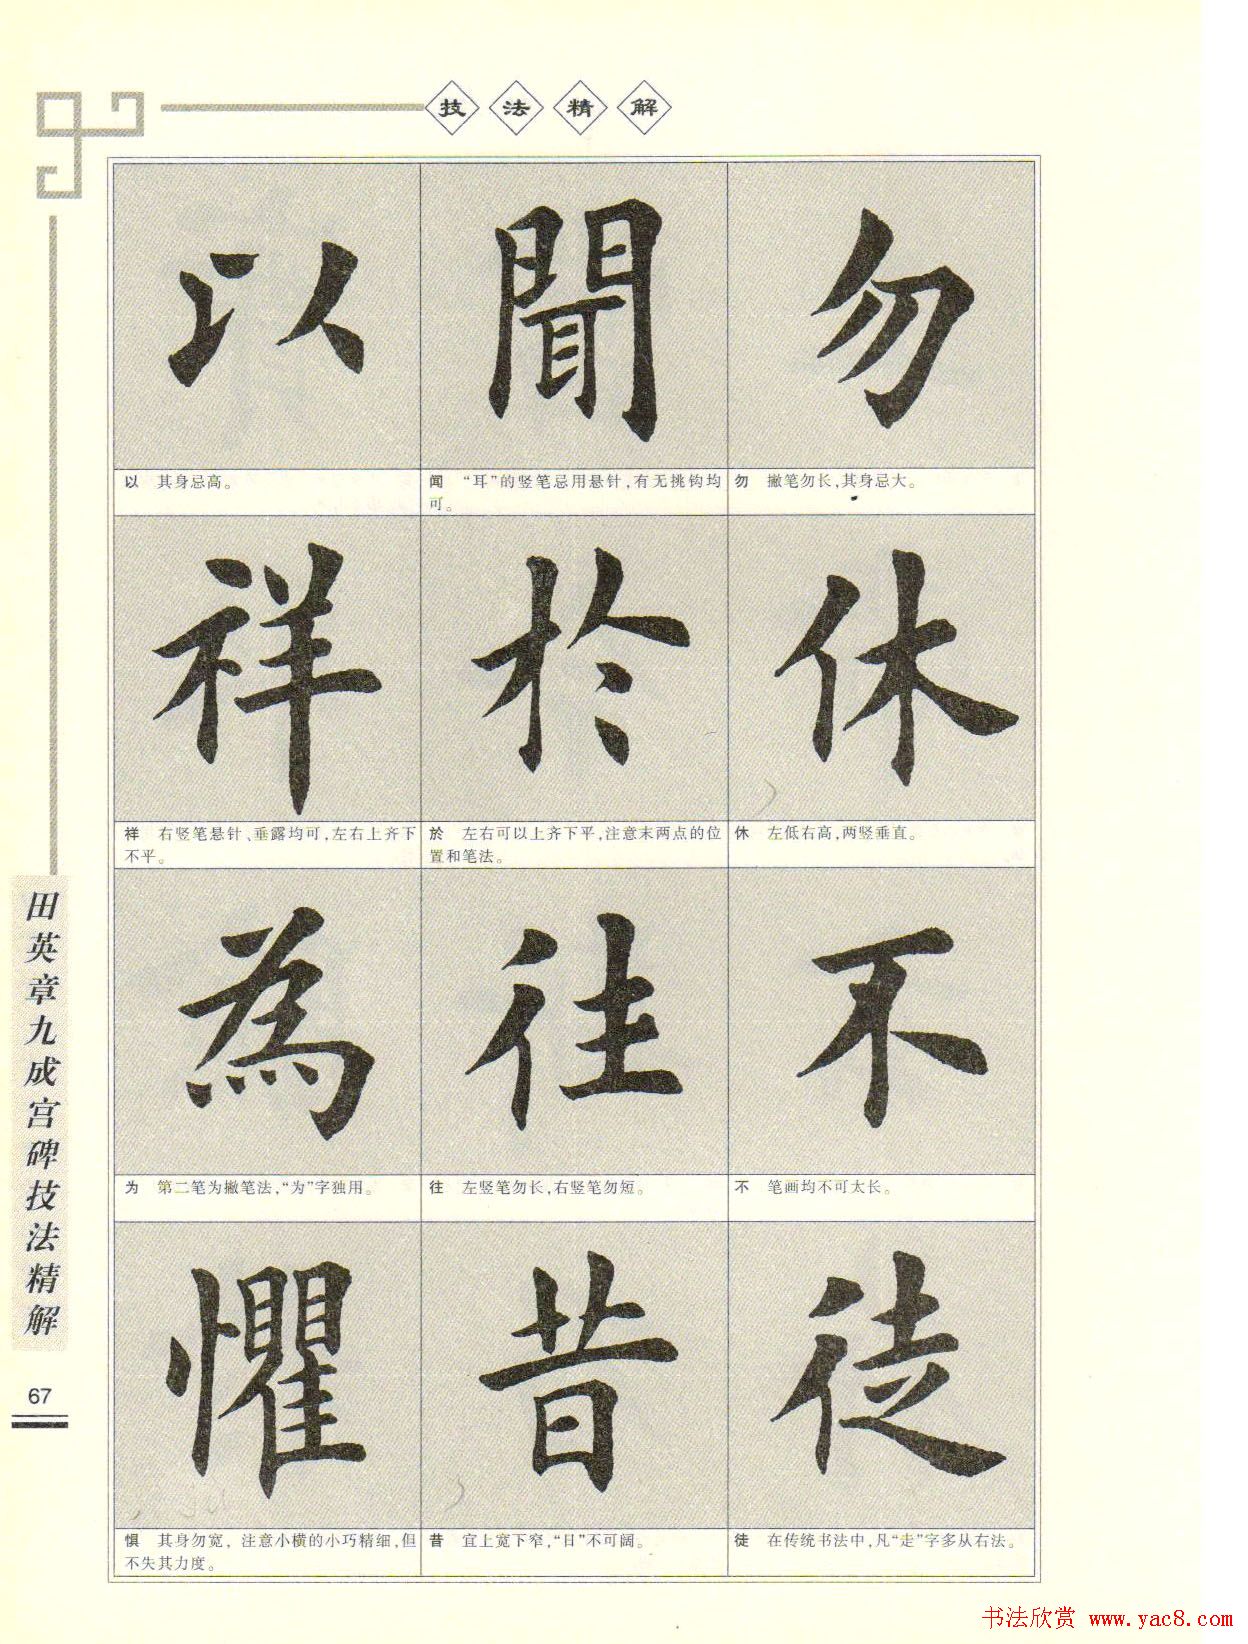 技法精解
以 聞 勿
以 其身忌高。
闻 “耳”的竖笔忌用悬针,有无挑钩均
可。
勿 撇笔勿长,其身忌大。
祥 於 休
祥 右竖笔悬针、垂露均可,左右上齐下
不平。
於 左右可以上齐下平,注意末两点的位
置和笔法。
休 左低右高,两竖垂直。
為 往 不
为 第二笔为撇笔法,“为”字独用。
往 左竖笔勿长,右竖笔勿短。
不 笔画均不可太长。
懼 昔 徒
惧 其身勿宽,注意小横的小巧精细,但
不失其力度。
昔 宜上宽下窄,“日”不可阔。
徒 在传统书法中,凡“走”字多从右法。
田英章九成宫碑技法精解
67
书法欣赏 www.yac8.com